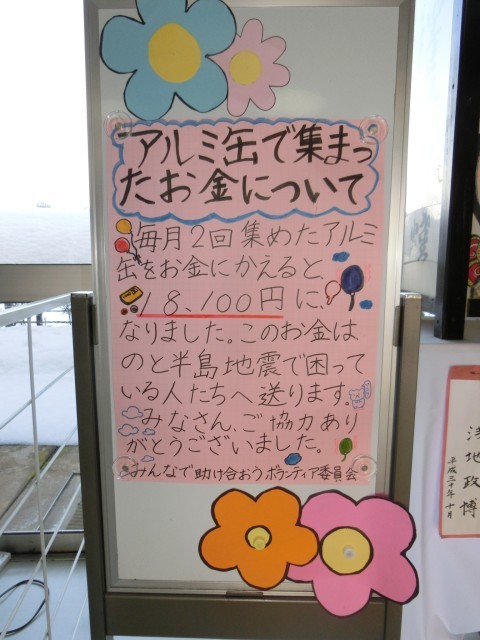 アルミ缶で集まっ
たお金について
毎月2回集めたアルミ
缶をお金にかえると、
18,100円に、
なりました。このお金は
のと半島地震で困って
いる人たちへ送ります。
みなさん、ご協力あり
がとうございました。
みんなで助け合おうボランティア委員会
浅地政博
平成三十年十月